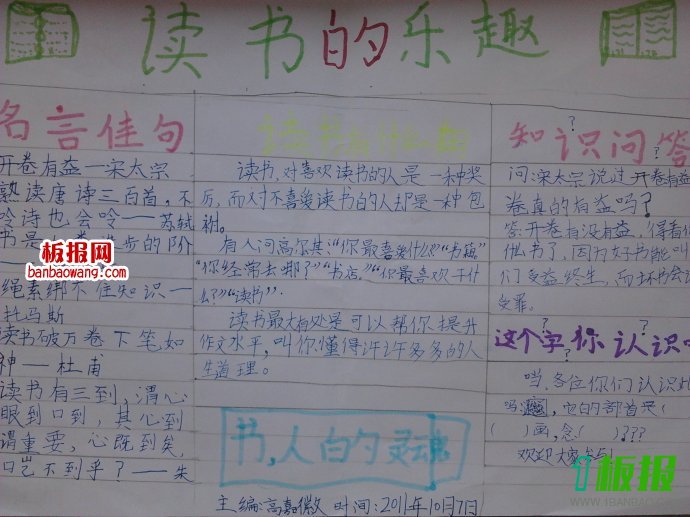 读书的乐趣
名言佳句
开卷有益一宋太宗
熟读唐诗三百首,不
吟诗也会吟——苏轼
书是
步的阶
绳索绑不住知识一
托马斯
读书破万卷下笔如
神——杜甫
读书有三到,谓心
眼到口到,其心到
谓重要,心既到矣,
口岂不到乎?——朱
读书,对喜欢读书的人是一种奖
历,而对不喜爱读书的人却是一种包
袱.
有人问高尔其:"你最喜爱什么?""书籍"
"你经常去哪了?""书店""你最喜欢干什
么?""读书".
读书最大有处是可以帮你提升
作文水平,叫你懂得许许多多的人
生道理。
书,人的灵魂
主编:高嘉微 时间:2011年10月7日
知识问答
问:宋太宗说过开卷有益
卷真的有益吗?
答:开卷有没有益,得看
什么书了,因为好书能叫
们受益终生,而坏书会
受罪.
这个字你认识
当,各位你们认识
吗 ,它的部首是(
( )画,念( )???
欢迎大家
板报网
banbaowang.com
1板报
WWW.1BANBAO